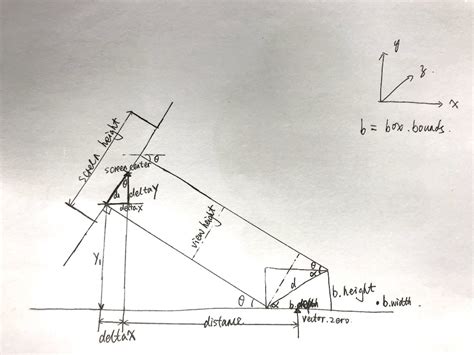 y
z
x
b = box.bounds.
screen height
θ
screen center
θ
d1
deltaY
deltaX
view height
Y1
θ
α
d
θ
α
b.height
b.depth
b.width.
vector.zero
deltaX
distance